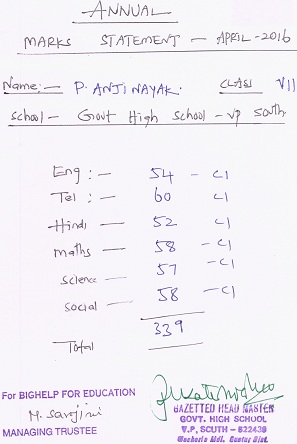 ANNUAL
MARKS STATEMENT - APRIL-2016
Name:- P. ANJI NAYAK. CLASS VII
School - Govt High School - vp South.
Eng :- 54 - C1
Tel :- 60 C1
Hindi - 52 C1
maths - 58 - C1
science - 57 - C1
social - 58 - C1
Total 339
For BIGHELP FOR EDUCATION
M. Sarojini
MANAGING TRUSTEE
GAZETTED HEAD MASTER
GOVT. HIGH SCHOOL
V.P, SOUTH - 522438
Guntur Dist.